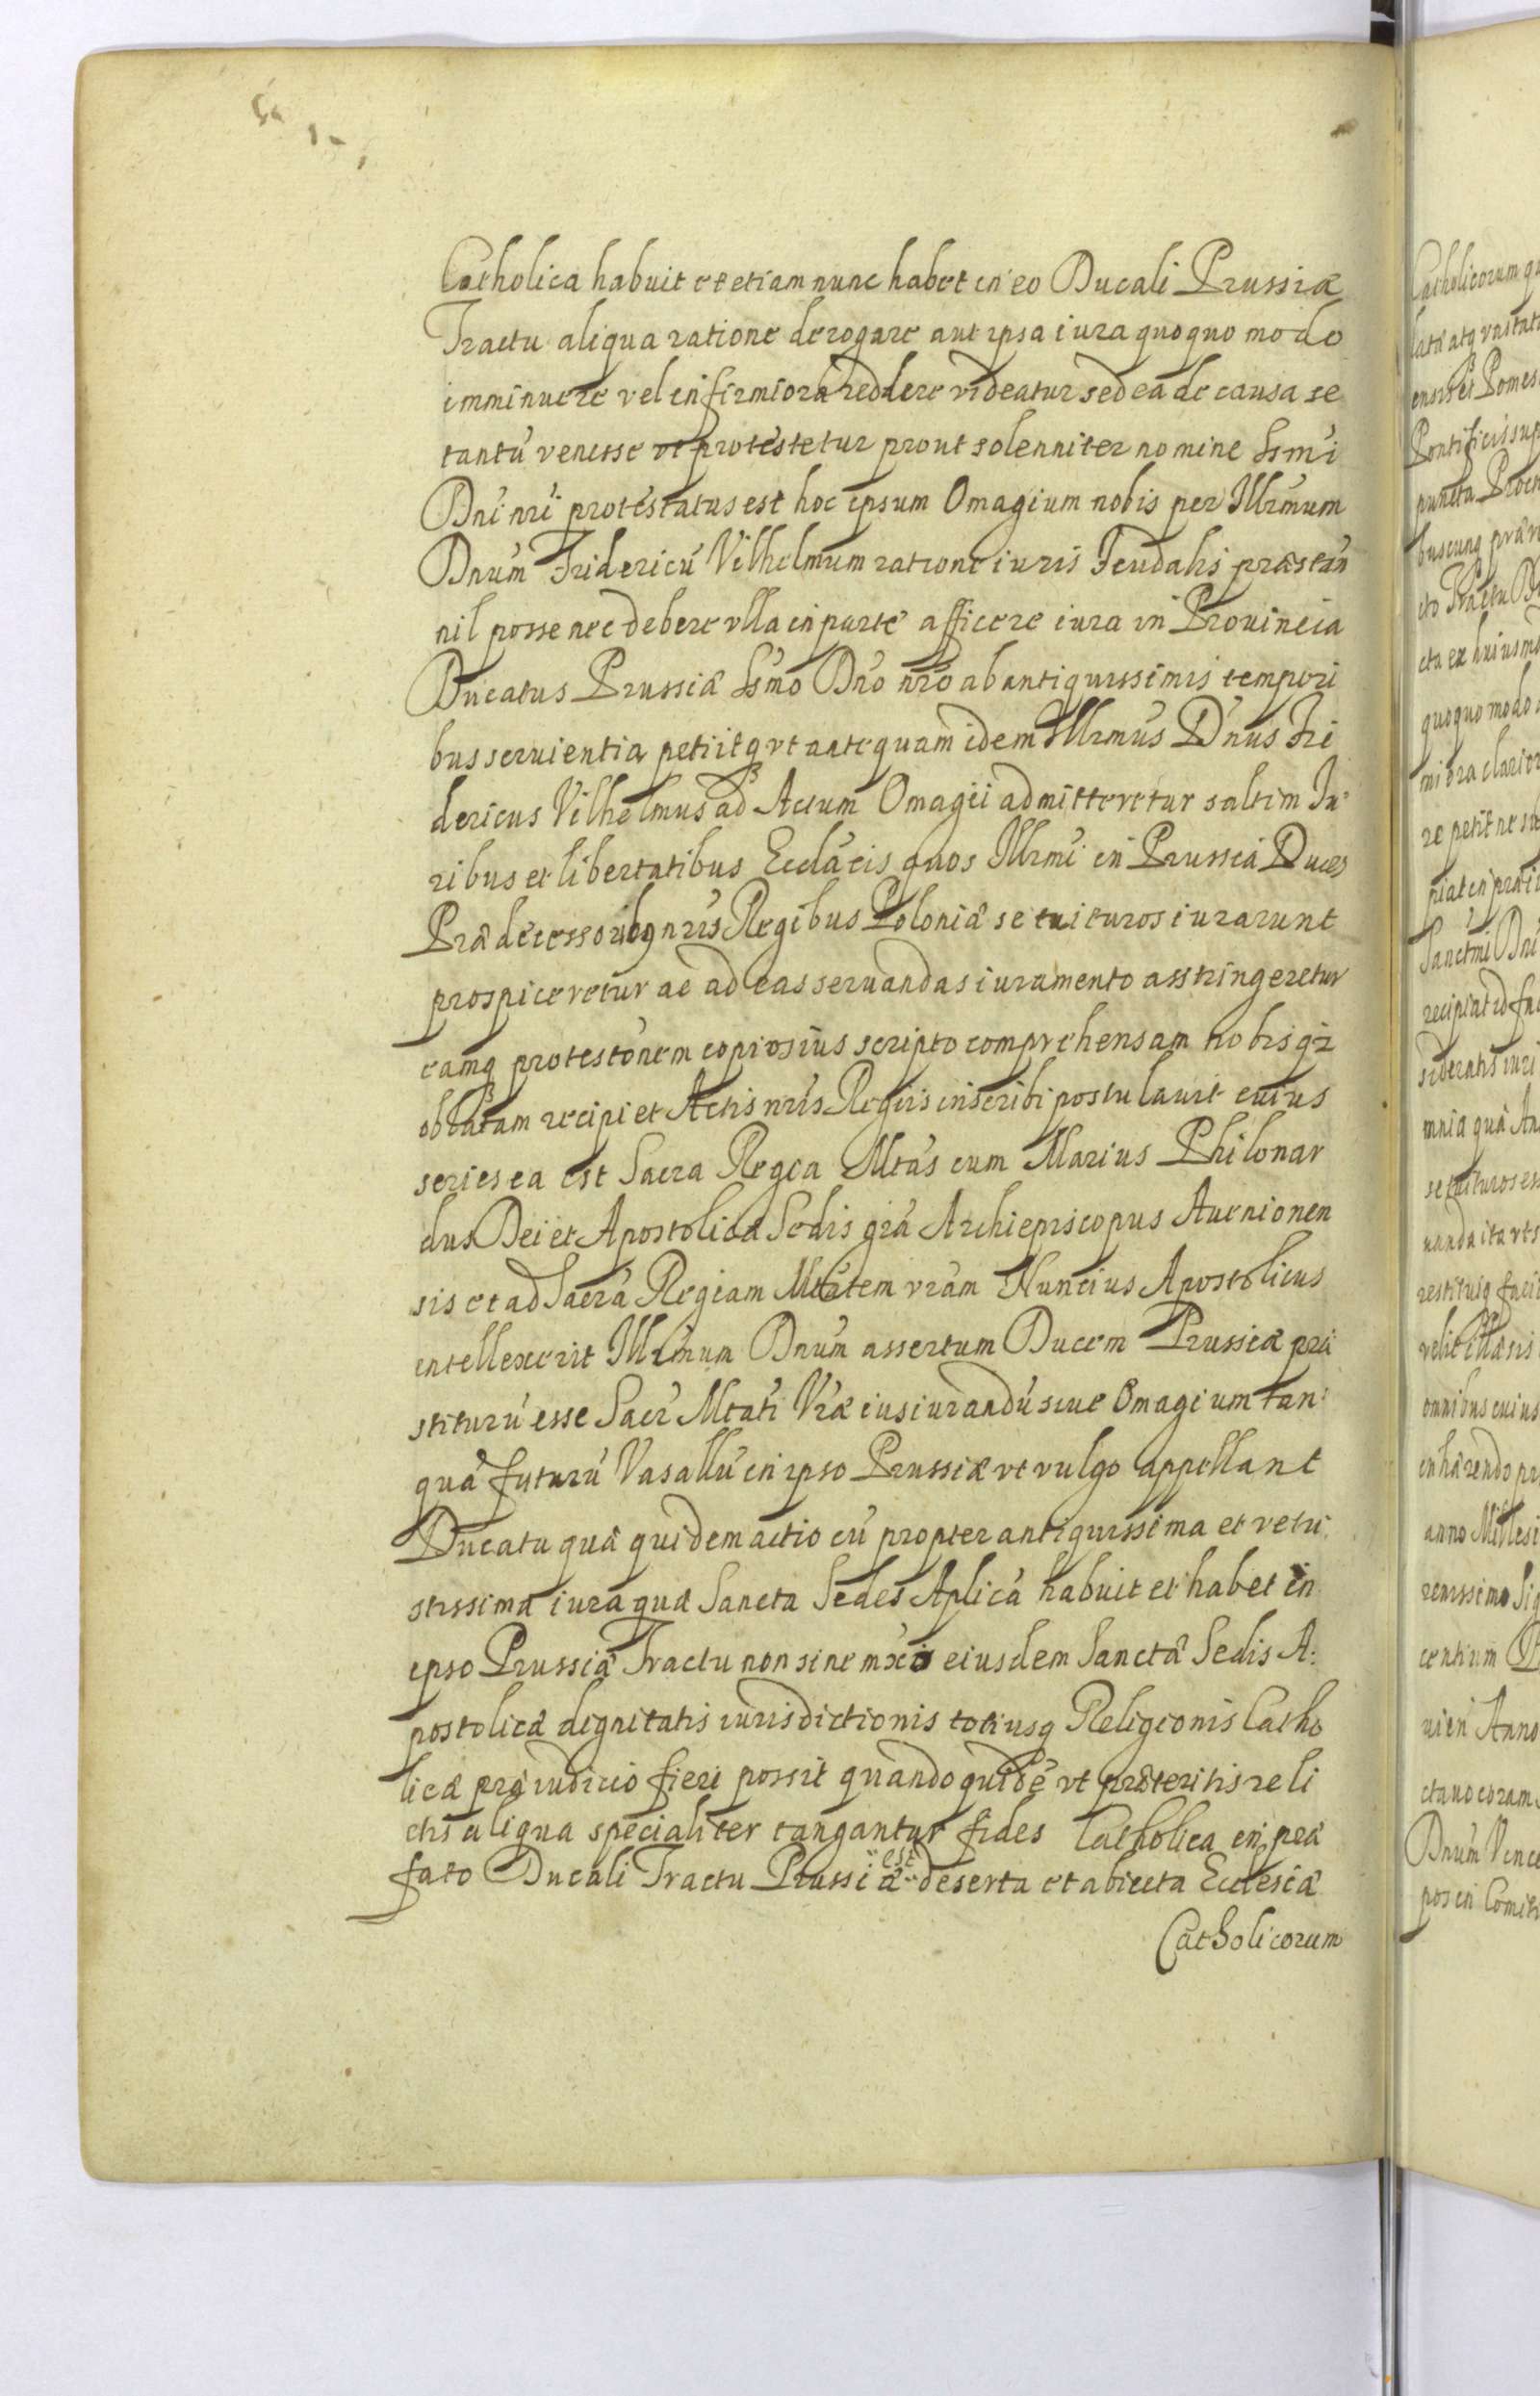 Catholica habuit et etiam nunc habet in eo Ducali Prussiæ
Tractu aliqua ratione derogare aut ipsa iura quoquo modo
imminuere vel infirmiora reddere videatur sed ea de causa se
tantũ venisse vt protestetur prout solenniter nomine Ssm̃i
Dñi nr̃i protestatus est hoc ipsum Omagium nobis per Illr̃mum
Dnũm Fridericũ Vilhelmum ratione iuris Feudalis præstañ
nil posse nec debere vlla in parte afficere iura in Prouincia
Ducatus Prussiæ Ssm̃o Dño nr̃o ab antiquissimis tempori
bus seruientia petiitq vt antequam idem Illrmũs Dñus Fri
dericus Vilhelmus ad Actum Omagii admitteretur saltim Iu-
ribus et libertatibus Ecclãcis quos Illrmĩ in Prussia Duces
Prædecessoribq nr̃is Regibus Poloniæ se tuituros iurarunt
prospiceretur ac ad eas seruandas iuramento asstringeretur
eamq protestõnem copiosius scripto comprehensam nobis qz
oblatam recipi et Actis nr̃is Regiis inscribi postulauit cuius
series ea est Sacra Regia Mtãs cum Marius Philonar
dus Dei et Apostolicæ Sedis grã Archiepiscopus Auenionen
sis et ad Sacrã Regiam Mtãtem vrãm Nuncius Apostolicus
intellexerit Illrm̃um Dnũm assertum Ducem Prussiæ præ
stiturũ esse Sacr̃ Mtati Vræ iusiurandũ siue Omagium tan-
quã futurũ Vasallũ in ipso Prussiæ vt vulgo appellant
Ducatu quæ quidem actio cũ propter antiquissima et vetu-
stissima iura quæ Sancta Sedes Aplicã habuit et habet in
ipso Prussiæ Tractu non sine mx̃io eiusdem Sanctæ Sedis A:
postolicæ dignitatis iurisdictionis totiusq Religionis Catho
licæ præiudicio fieri possit quandoquidẽ vt præteritis reli
ctis aliqua specialiter tangantur fides Catholica in præ
fato Ducali Tractu Prussiæ est deserta et abiecta Ecclesiæ
Catholicorum